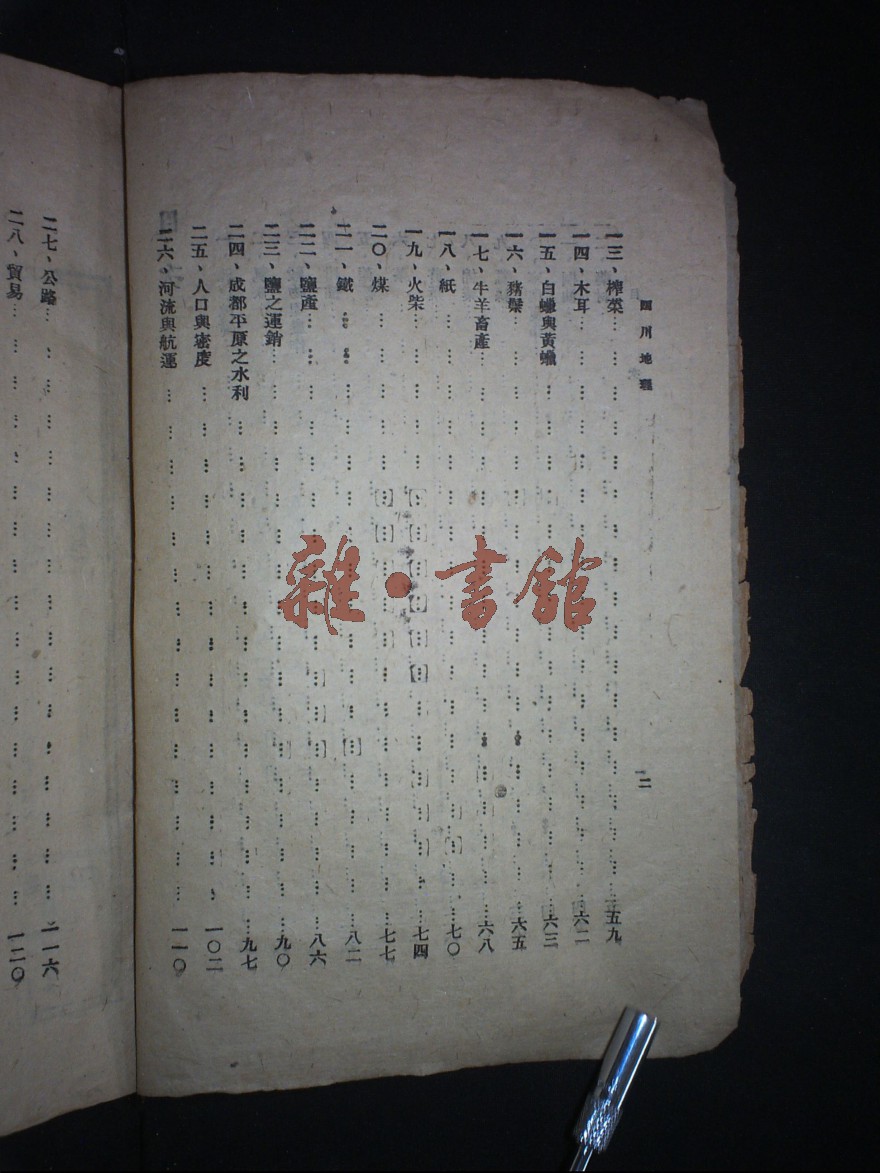 四川地理
二
一三、榨菜……五九
一四、木耳……六二
一五、白蠟與黃蠟……六三
一六、豬鬃……六五
一七、牛羊畜產……六八
一八、紙……七〇
一九、火柴……七四
二〇、煤……七七
二一、鐵……八二
二二、鹽產……八六
二三、鹽之運銷……九〇
二四、成都平原之水利……九七
二五、人口與密度……一〇二
二六、河流與航運……一一〇
二七、公路……一一六
二八、貿易……一二〇
雜·書館